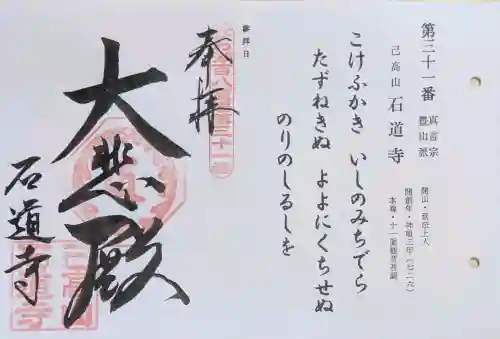 第三十一番 真言宗
豊山派
己高山 石道寺
開山・延法上人
開創年・神亀三年(七二六)
本尊・十一面観音菩薩
こけふかき いしのみちでら
たずねきぬ よよにくちせぬ
のりのしるしを
参拝日
奉拝
大悲殿
石道寺